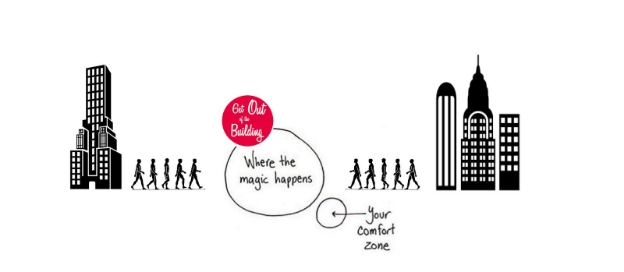 Get Out
of the
Building
Where the
magic happens
Your
comfort
zone